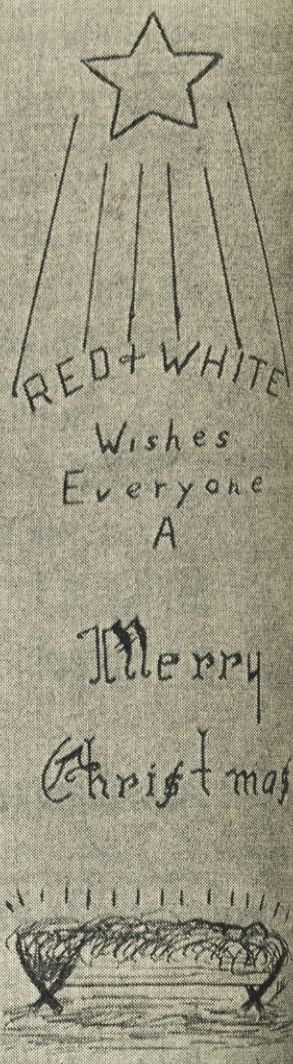 RED + WHITE
Wishes
Everyone
A
Merry
Christmas